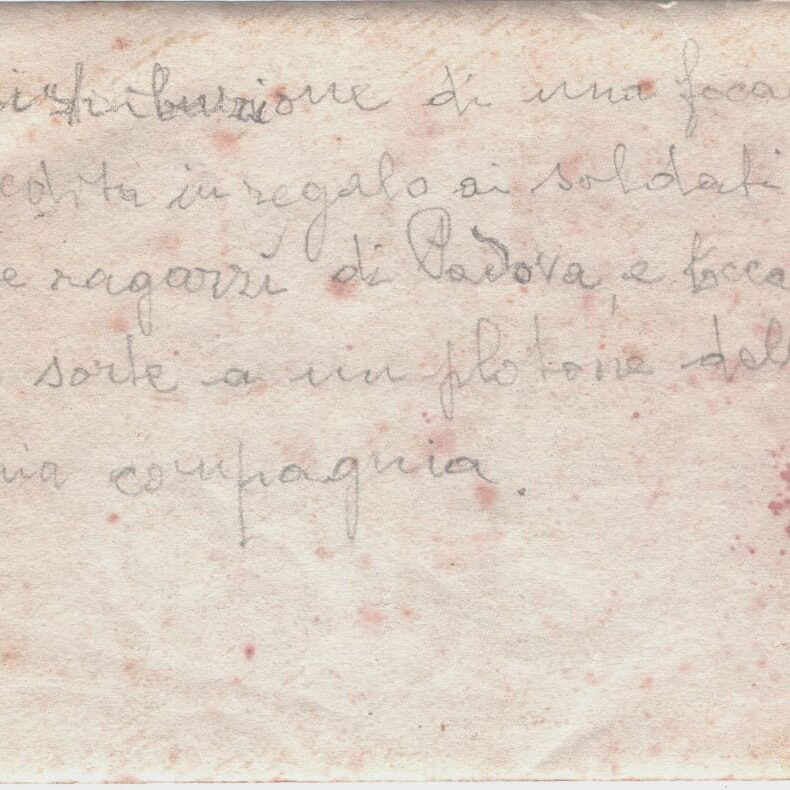 istribuzione di una foca
edita in regalo ai soldati
e ragazzi di Padova, e tocca
sorte a un plotone dell
mia compagnia.